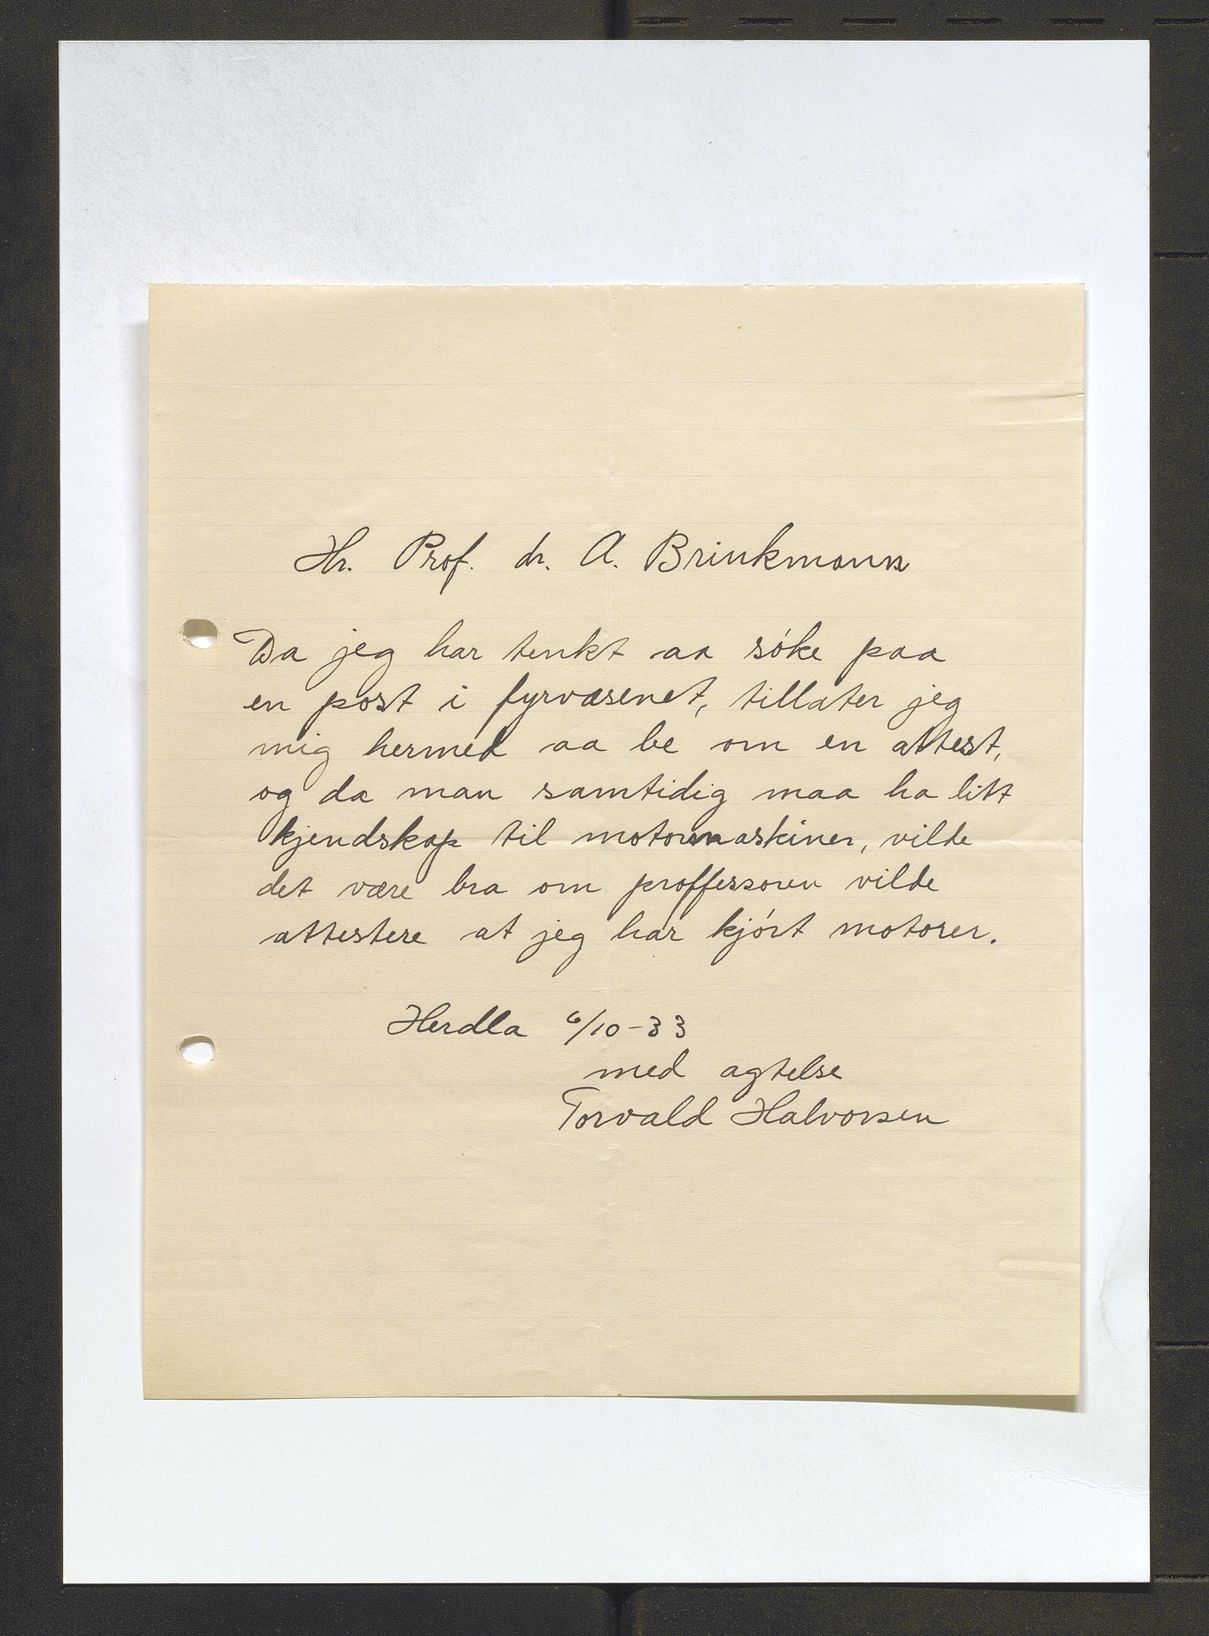 Hr. Prof. dr. A. Brinkmann
Da jeg har tenkt aa søke paa
en post i fyrvæsenet, tillater jeg
mig hermed aa be om en attest,
og da man samtidig maa ha litt
kjendskap til motormaskiner, vilde
det være bra om proffessoren vilde
attestere at jeg har kjørt motorer.
Herdla 6/10-33
med agtelse
Torvald Halvorsen